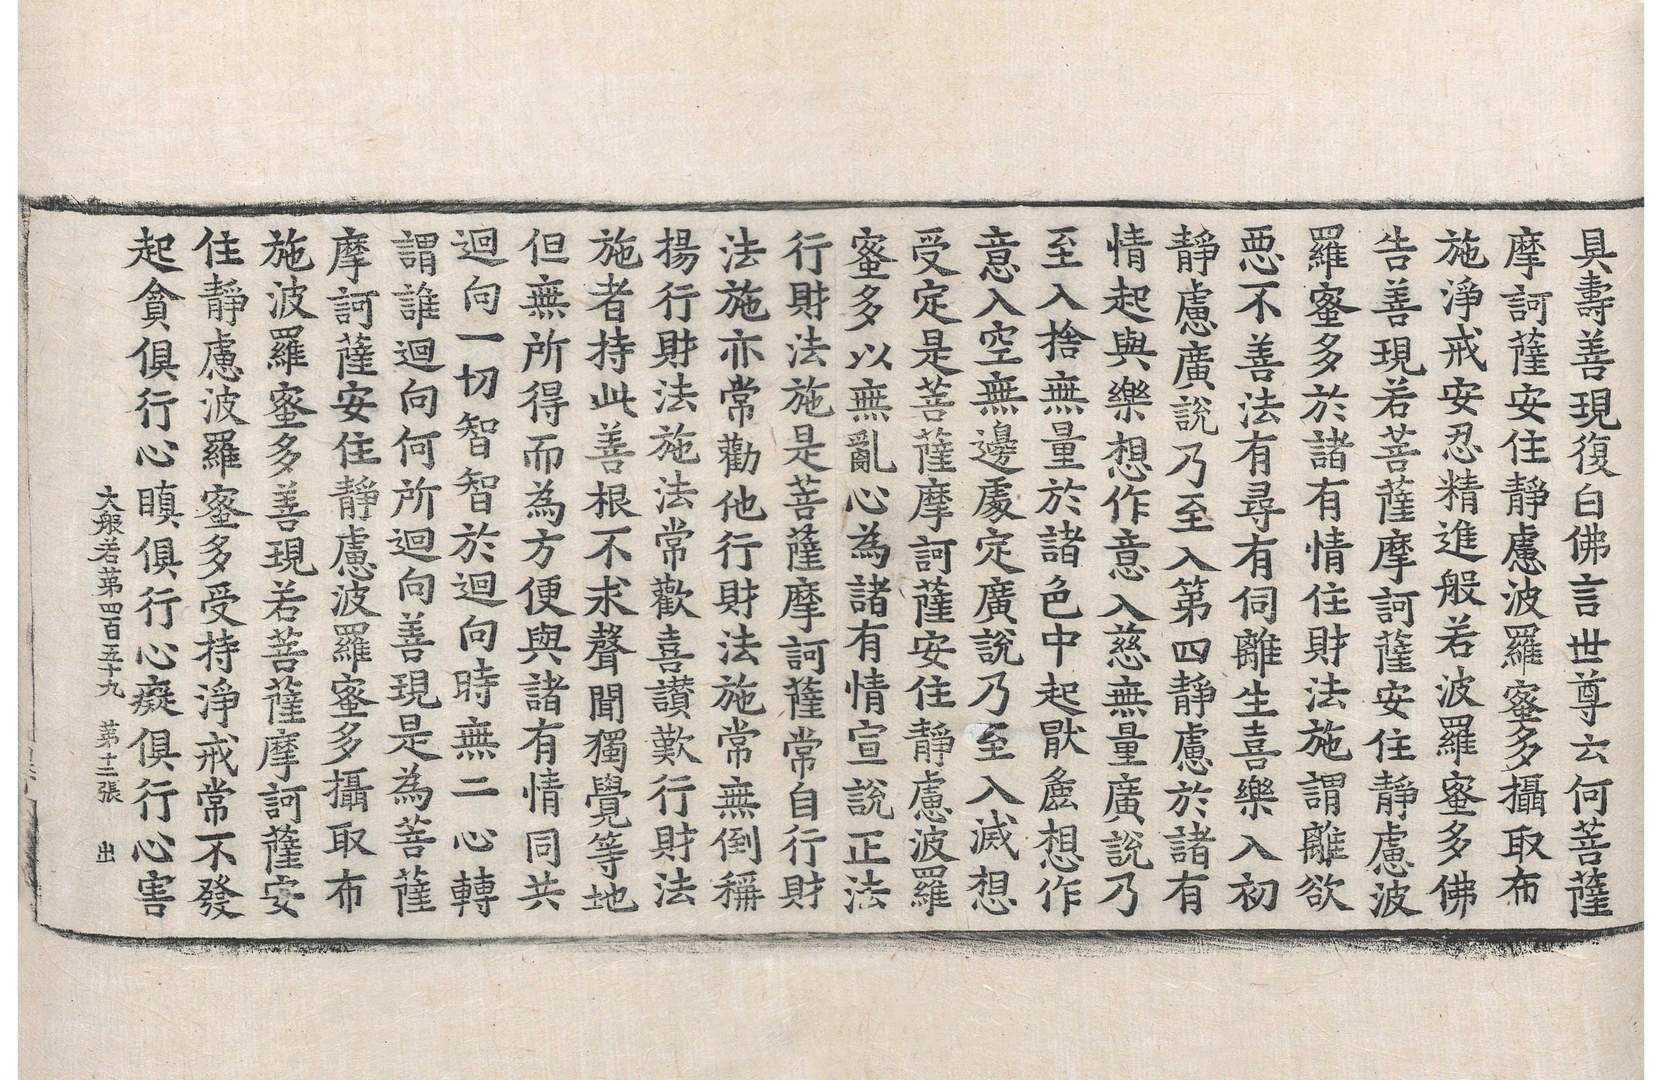 具壽善現復白佛言世尊云何菩薩
摩訶薩安住靜慮波羅蜜多攝取布
施淨戒安忍精進般若波羅蜜多佛
告善現若菩薩摩訶薩安住靜慮波
羅蜜多於諸有情住財法施謂離欲
惡不善法有尋有伺離生喜樂入初
靜慮廣說乃至入第四靜慮於諸有
情起與樂想作意入慈無量廣說乃
至入捨無量於諸色中起猒麁想作
意入空無邊處定廣說乃至入滅想
受定是菩薩摩訶薩安住靜慮波羅
蜜多以無亂心為諸有情宣說正法
行財法施是菩薩摩訶薩常自行財
法施亦常勸他行財法施常無倒稱
揚行財法施法常歡喜讚歎行財法
施者持此善根不求聲聞獨覺等地
但無所得而為方便與諸有情同共
迴向一切智智於迴向時無二心轉
謂誰迴向何所迴向善現是為菩薩
摩訶薩安住靜慮波羅蜜多攝取布
施波羅蜜多善現若菩薩摩訶薩安
住靜慮波羅蜜多受持淨戒常不發
起貪俱行心瞋俱行心癡俱行心害
大般若第四百五十九 第十二張 出